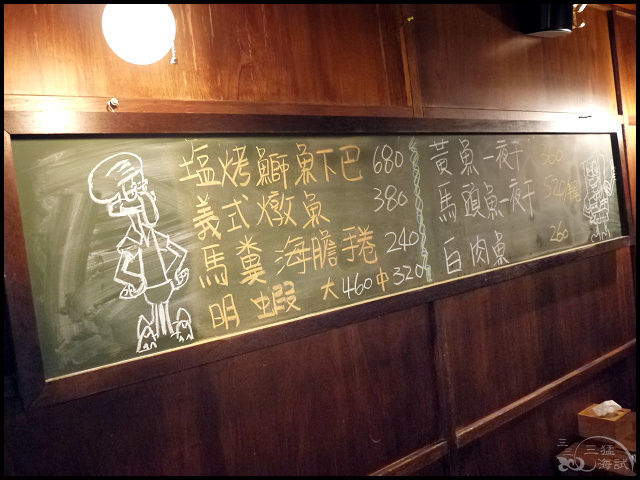 塩烤鰤魚下巴 680
義式燉魚 380
馬糞海膽手卷 240
明蝦 大460中320
黃魚一夜干
馬頭魚一夜干 520
白肉魚 260
三猛
海試